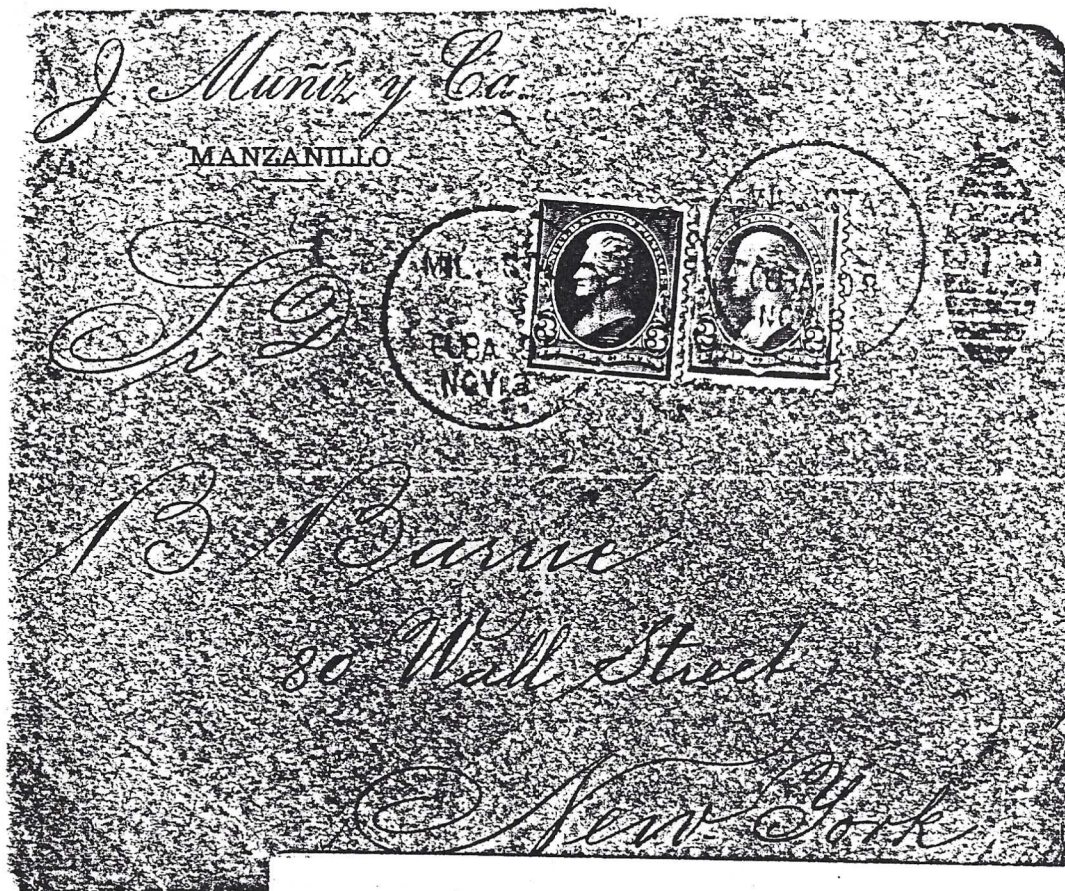 J Muñiz y Ca.
MANZANILLO
Sr D
MIL. ST
CUBA
NOV
MIL. STA
CUBA 98
NOV
3 3
2 2
1
B N Barné
80 Wall Street
New York